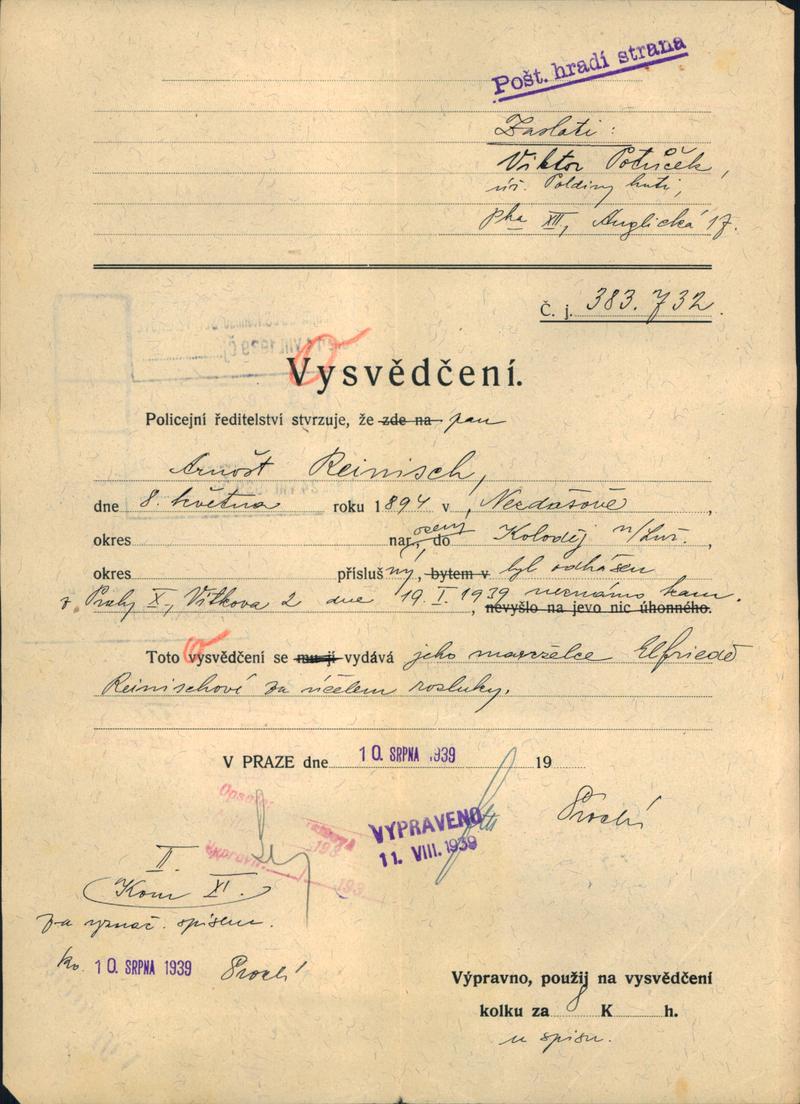 Pošt. hradí strana
Zaslati:
Viktor Potůček,
úř. Poldiny huti,
Pha XII, Anglická 17.
Č. j. 383.732
Vysvědčení.
Policejní ředitelství stvrzuje, že zde na pan
Arnošt Reinisch,
dne 8. května roku 1894 v Nezdašově,
okres nar, ozený do Koloděj n/Luž.
okres přísluš ný, bytem v byl odhášen
z Prahy X, Vítkova 2 dne 19. I. 1939 neznámo kam.
nevyšlo na jevo nic úhonného.
Toto vysvědčení se mu-jí vydává jeho manželce Elfriedě
Reinischové za účelem rozluky.
V PRAZE dne 10. SRPNA 1939 19
Opsáno:
193
Vypravil:
193
VYPRAVENO
11. VIII. 1939
II.
Kom XI.
za vyznač. spisem.
10. SRPNA 1939
Výpravno, použij na vysvědčení
kolku za 8 K h.
u spisu.